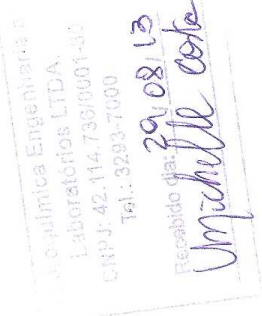 química Engenharia e
Laboratórios LTDA.
CNPJ: 42.114.736/0001-
Tel.: 3293-7000
Recebido dia: 29/08/13
Michelle Costa